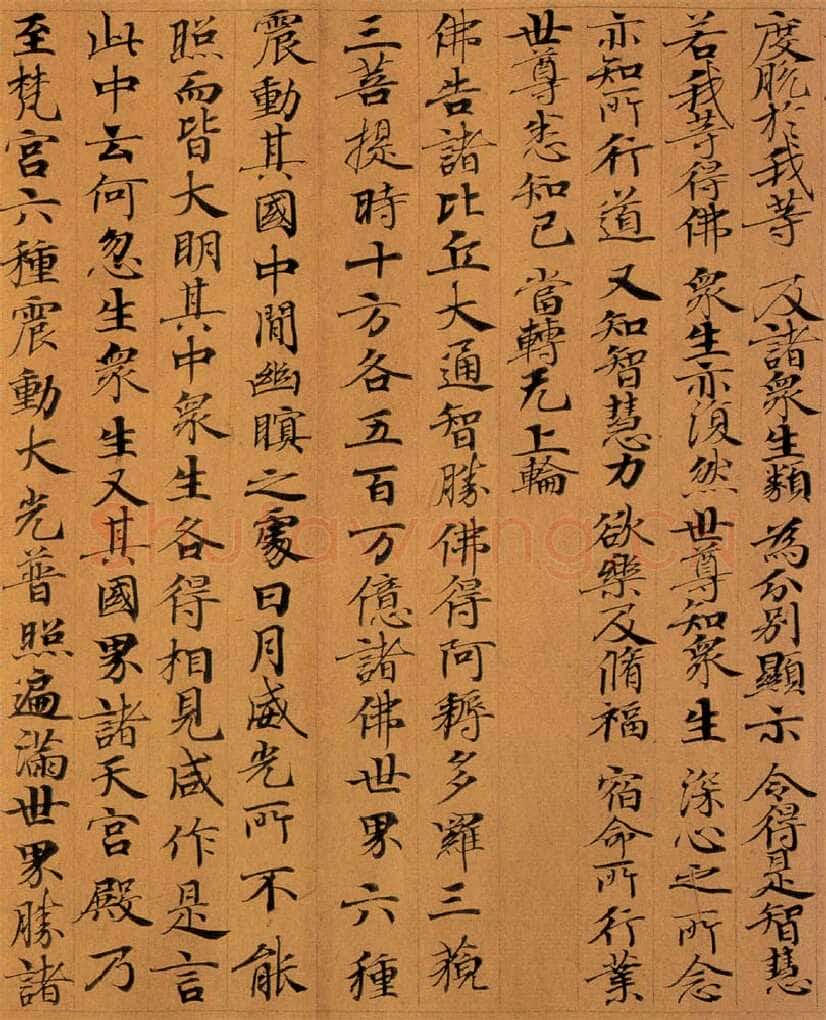 度脫於我等 及諸衆生類 為分別顯示 令得是智慧
若我等得佛 衆生亦復然 世尊知衆生 深心之所念
亦知所行道 又知智慧力 欲樂及脩福 宿命所行業
世尊悉知已 當轉无上輪
佛告諸比丘大通智勝佛得阿耨多羅三藐
三菩提時十方各五百万億諸佛世界六種
震動其國中閒幽瞑之處日月威光所不能
照而皆大明其中衆生各得相見咸作是言
此中云何忽生衆生又其國界諸天宮殿乃
至梵宮六種震動大光普照遍滿世界勝諸